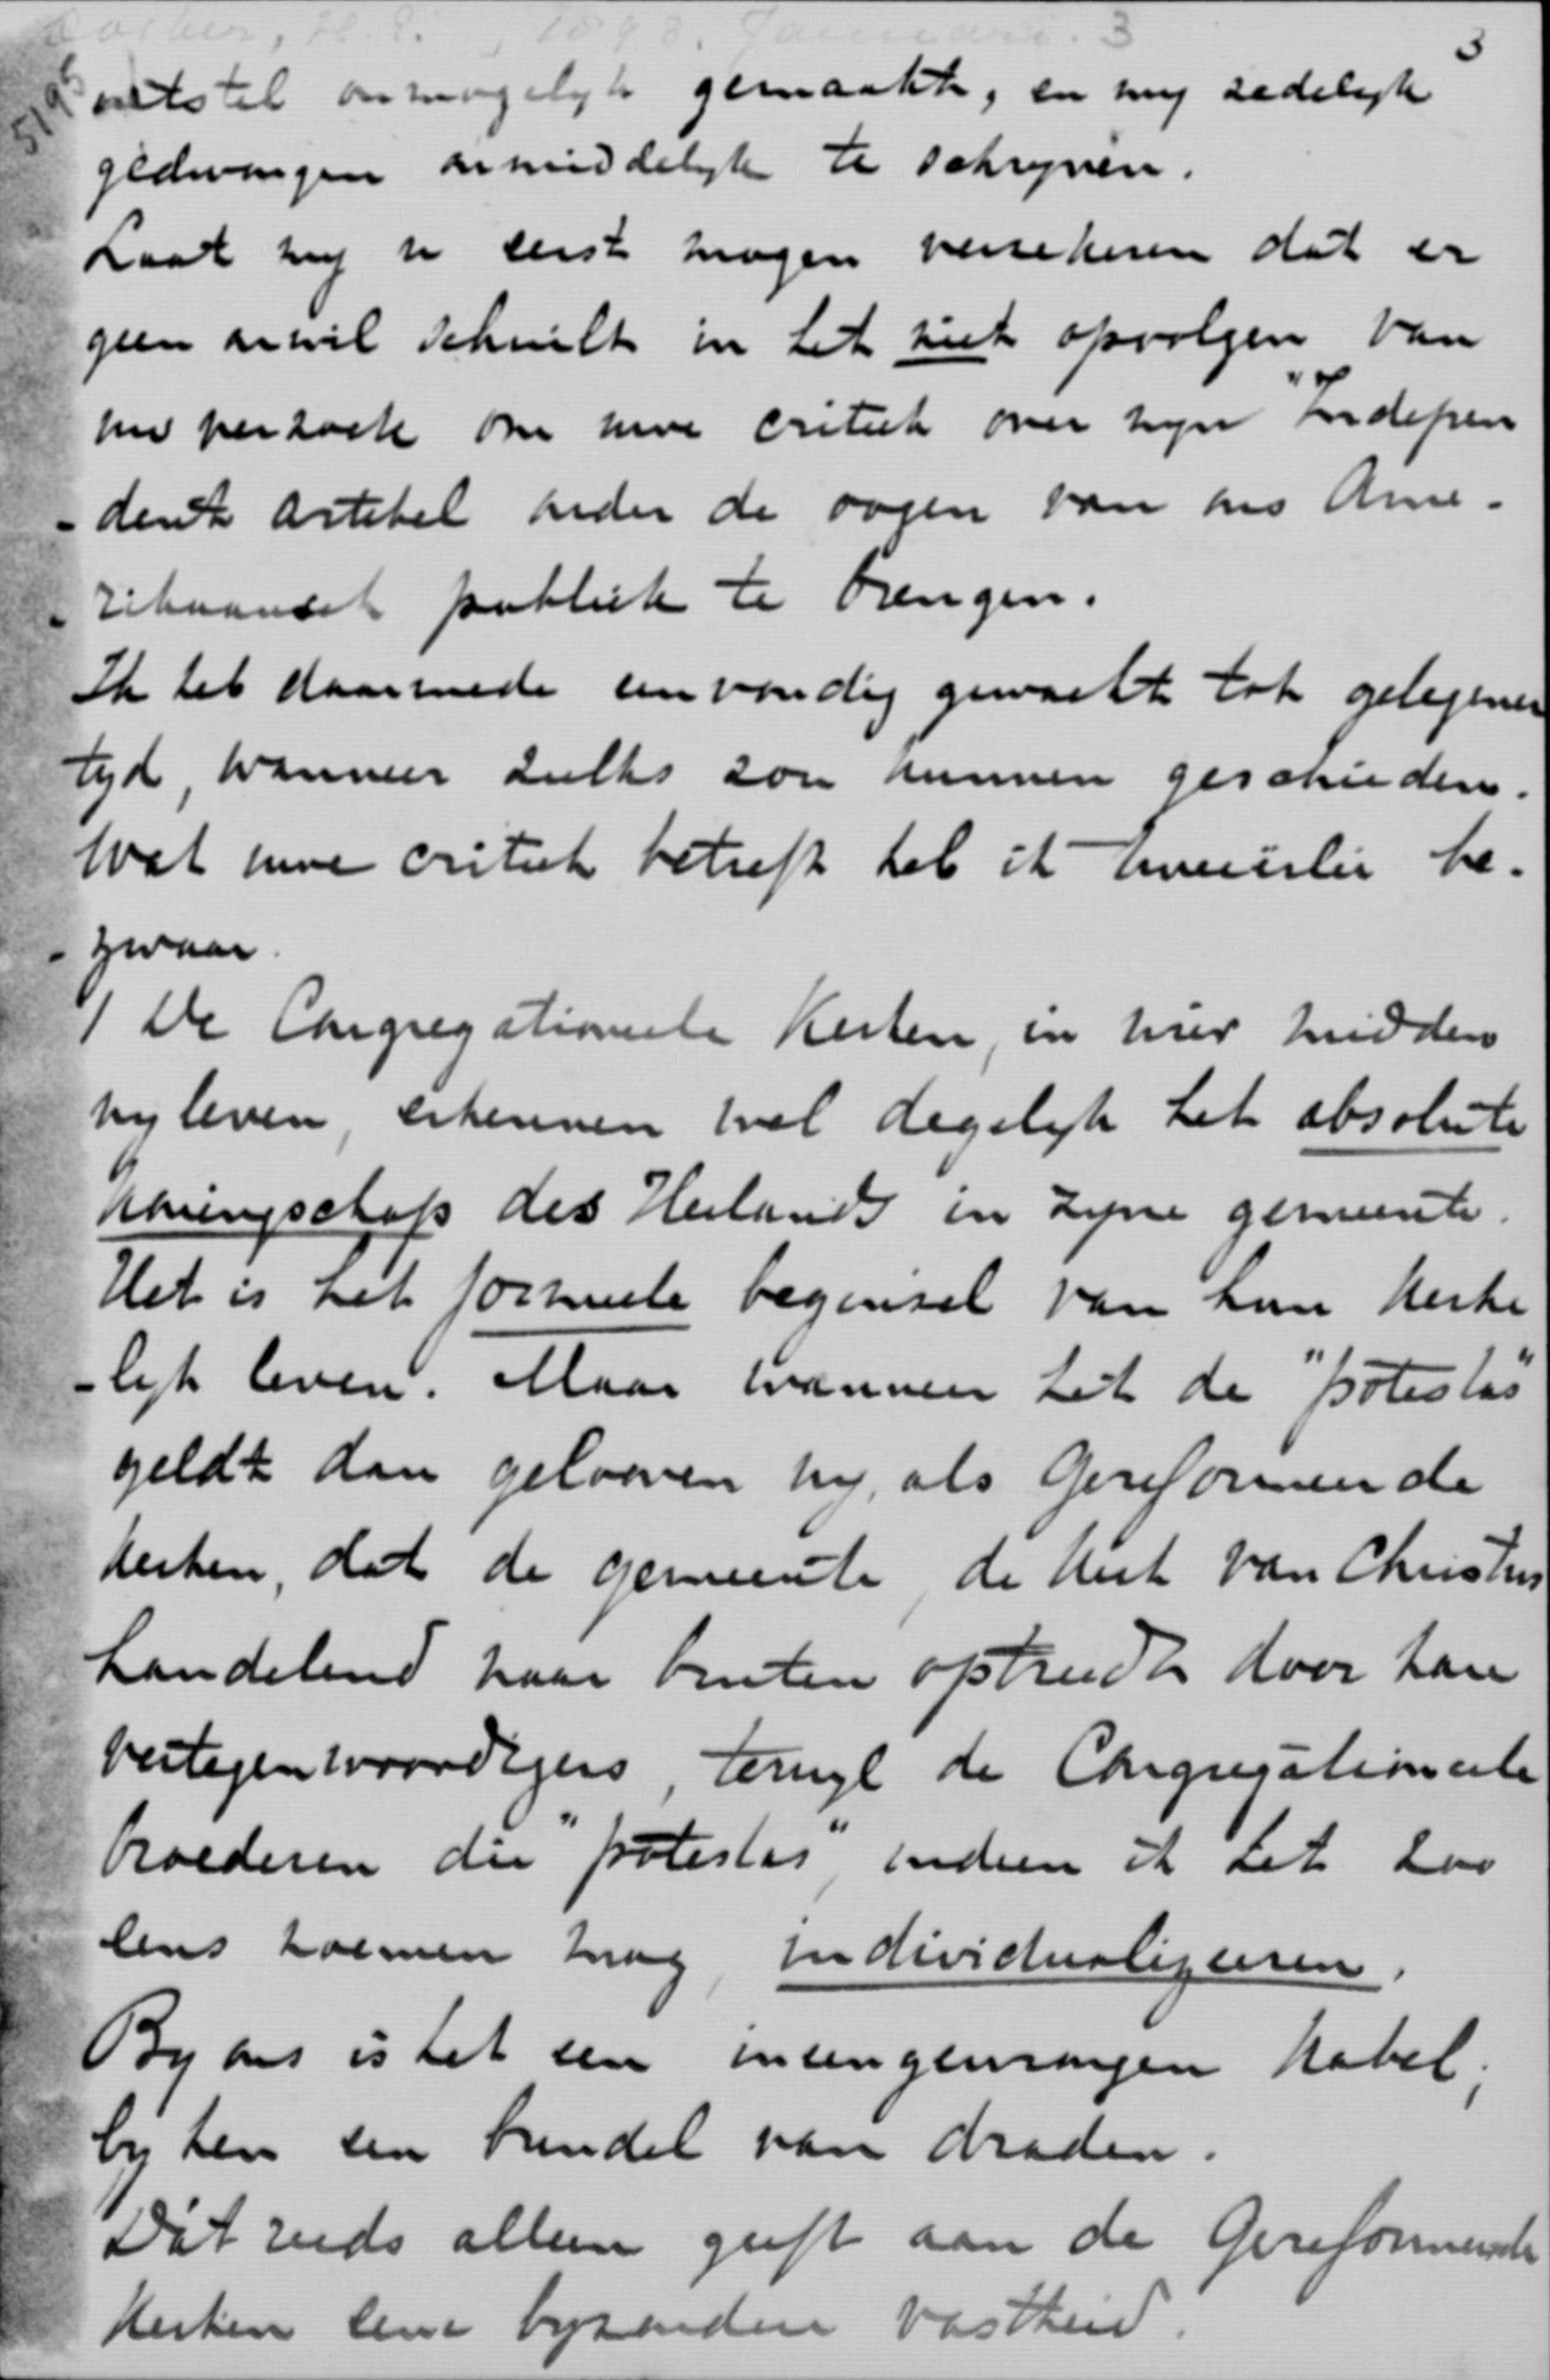 Dosker, H. E., 1893, Januari. 3
3
uitstel onmogelyk gemaakt, en my zedelyk
gedwongen onmiddelyk te schryven.
Laat my u eerst mogen verzekeren dat er
geen onwil schuilt in het niet opvolgen van
uw verzoek om uwe critiek over myn "Indepen
-dent" artikel onder de oogen van ons Ame-
-rikaansch publiek te brengen.
Ik heb daarmede eenvoudig gewacht tot gelegener
tyd, wanneer zulks zou kunnen geschieden.
Wat uwe critiek betreft heb ik tweeërlei be-
-zwaar.
1/ De Congregationeele Kerken, in wier midden
wy leven, erkennen wel degelyk het absolute
Koningschap des Heilands in zyne gemeente.
Het is het formeele beginsel van hun kerke
-lyk leven. Maar wanneer het de "potestas"
geldt dan gelooven wy, als Gereformeerde
kerken, dat de gemeente, de kerk van Christus
handelend naar buiten optreedt door hare
vertegenwoordigers, terwyl de Congregationeele
broederen die "potestas", indien ik het zoo
eens noemen mag, individualizeeren.
By ons is het een ineengewrongen kabel;
by hen een bundel van draden.
Dàt reeds alleen geeft aan de Gereformeerde
Kerken eene byzondere vastheid.